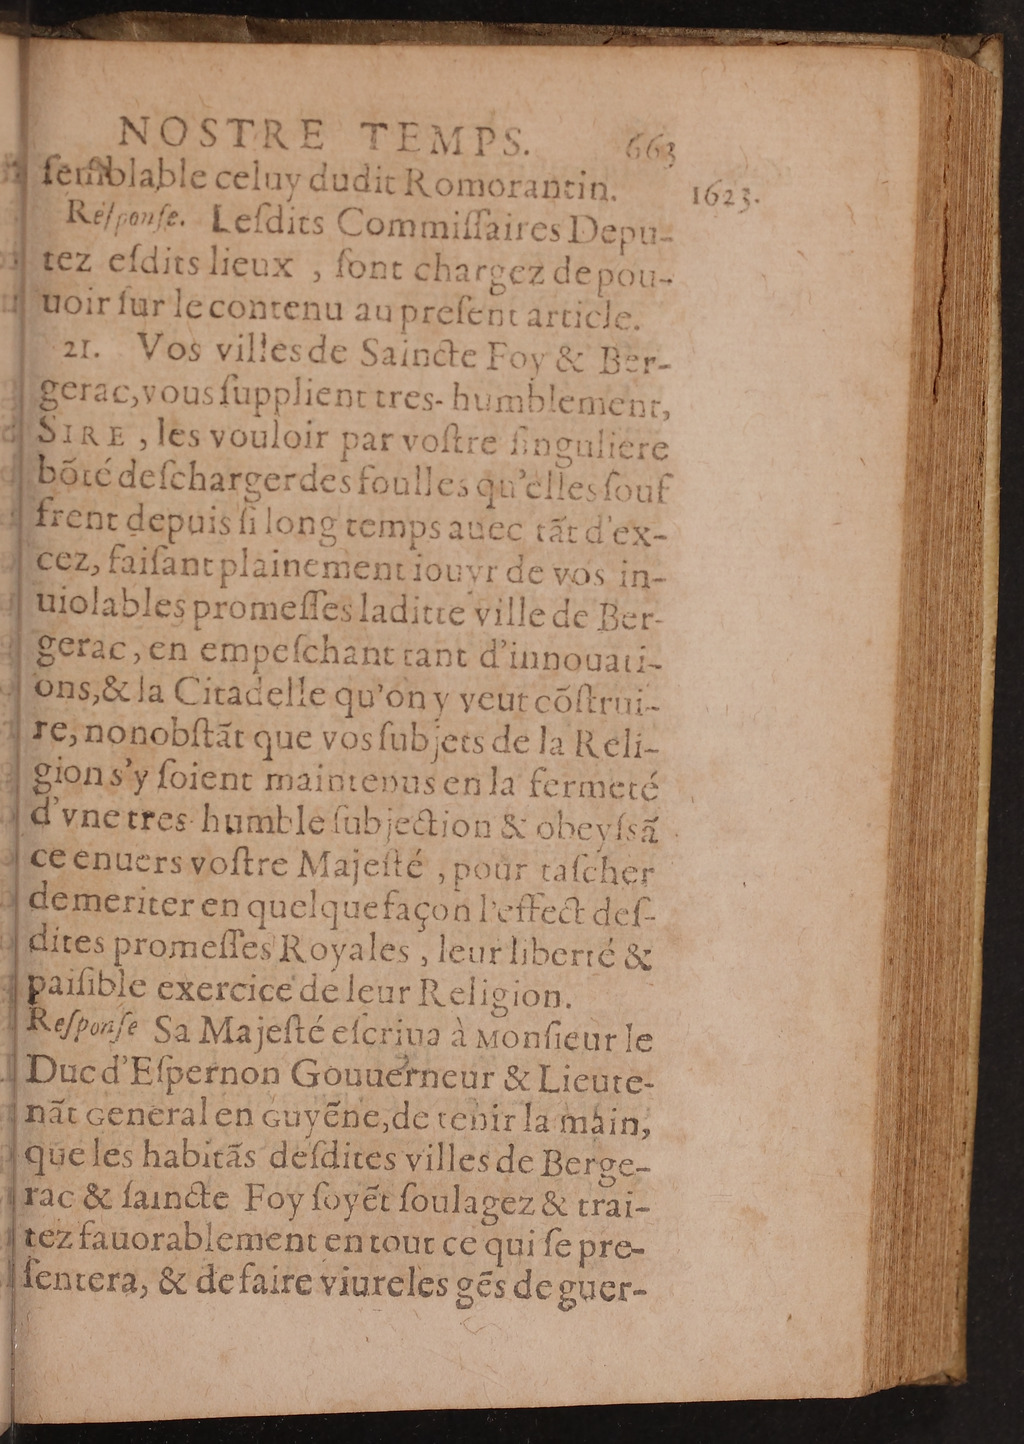 NOSTRE TEMPS. 663
semblable celuy dudit Romorantin. 1623.
Reſponſe. Leſdits Commiſſaires Depu-
tez eſdits lieux , ſont chargez de pou-
uoir ſur le contenu au preſent article.
21. Vos villes de Saincte Foy & Ber-
gerac, vous ſupplient tres-humblement,
SIRE , les vouloir par voſtre ſinguliere
bõté deſcharger des foulles qu'elles ſouf
frent depuis ſi long temps auec tãt d'ex-
cez, faiſant plainement iouyr de vos in-
uiolables promeſſes laditte ville de Ber-
gerac, en empeſchant tant d'innouati-
ons, & la Citadelle qu'on y veut cõſtrui-
re, nonobſtãt que vos ſubjets de la Reli-
gion s'y ſoient maintenus en la fermeté
d'vne tres-humble ſubjection & obeyſsã
ce enuers voſtre Majeſté , pour taſcher
de meriter en quelque façon l'effect deſ-
dites promeſſes Royales , leur liberté &
paiſible exercice de leur Religion.
Reſponſe Sa Majeſté eſcriua à Monſieur le
Duc d'Eſpernon Gouuerneur & Lieute-
nãt General en Guyẽne, de tenir la main,
que les habitãs deſdites villes de Berge-
rac & ſaincte Foy ſoyẽt ſoulagez & trai-
tez fauorablement en tout ce qui ſe pre-
ſentera, & de faire viure les gẽs de guer-